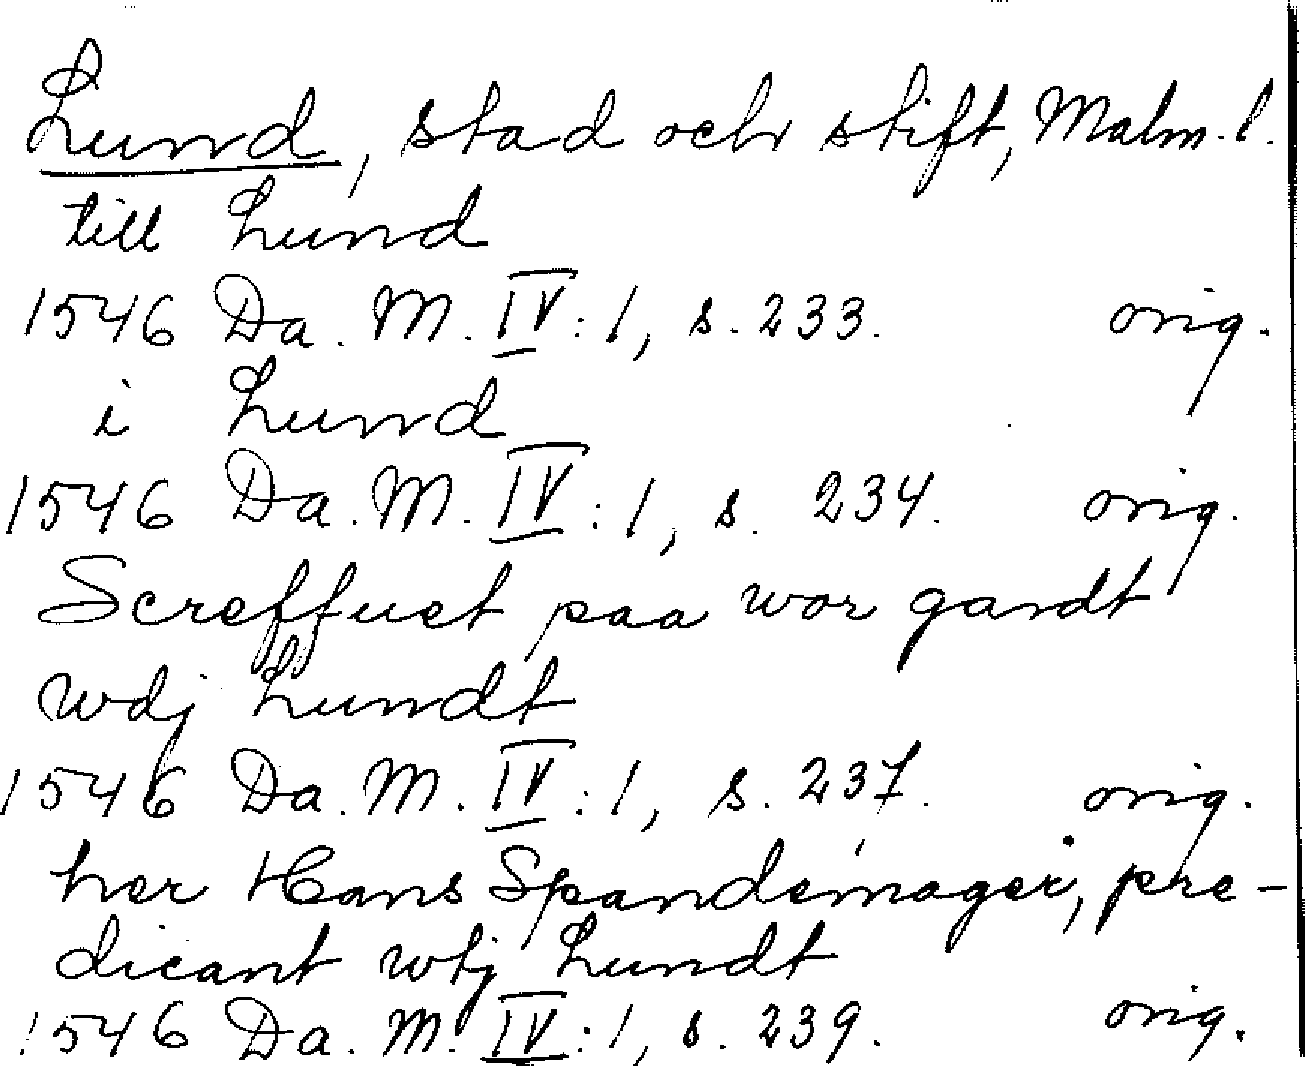 Lund, stad och stift, Malm. l.
till Lund
1546 Da. M. IV: 1, s. 233. orig.
i Lund
1546 Da. M. IV: 1, s. 234. orig.
Screffuet paa wor gardt
wdj Lundt
1546 Da. M. IV: 1, s. 237. orig.
her Hans Spandemager, pre-
dicant wtj Lundt
1546 Da. M. IV: 1, s. 239. orig.